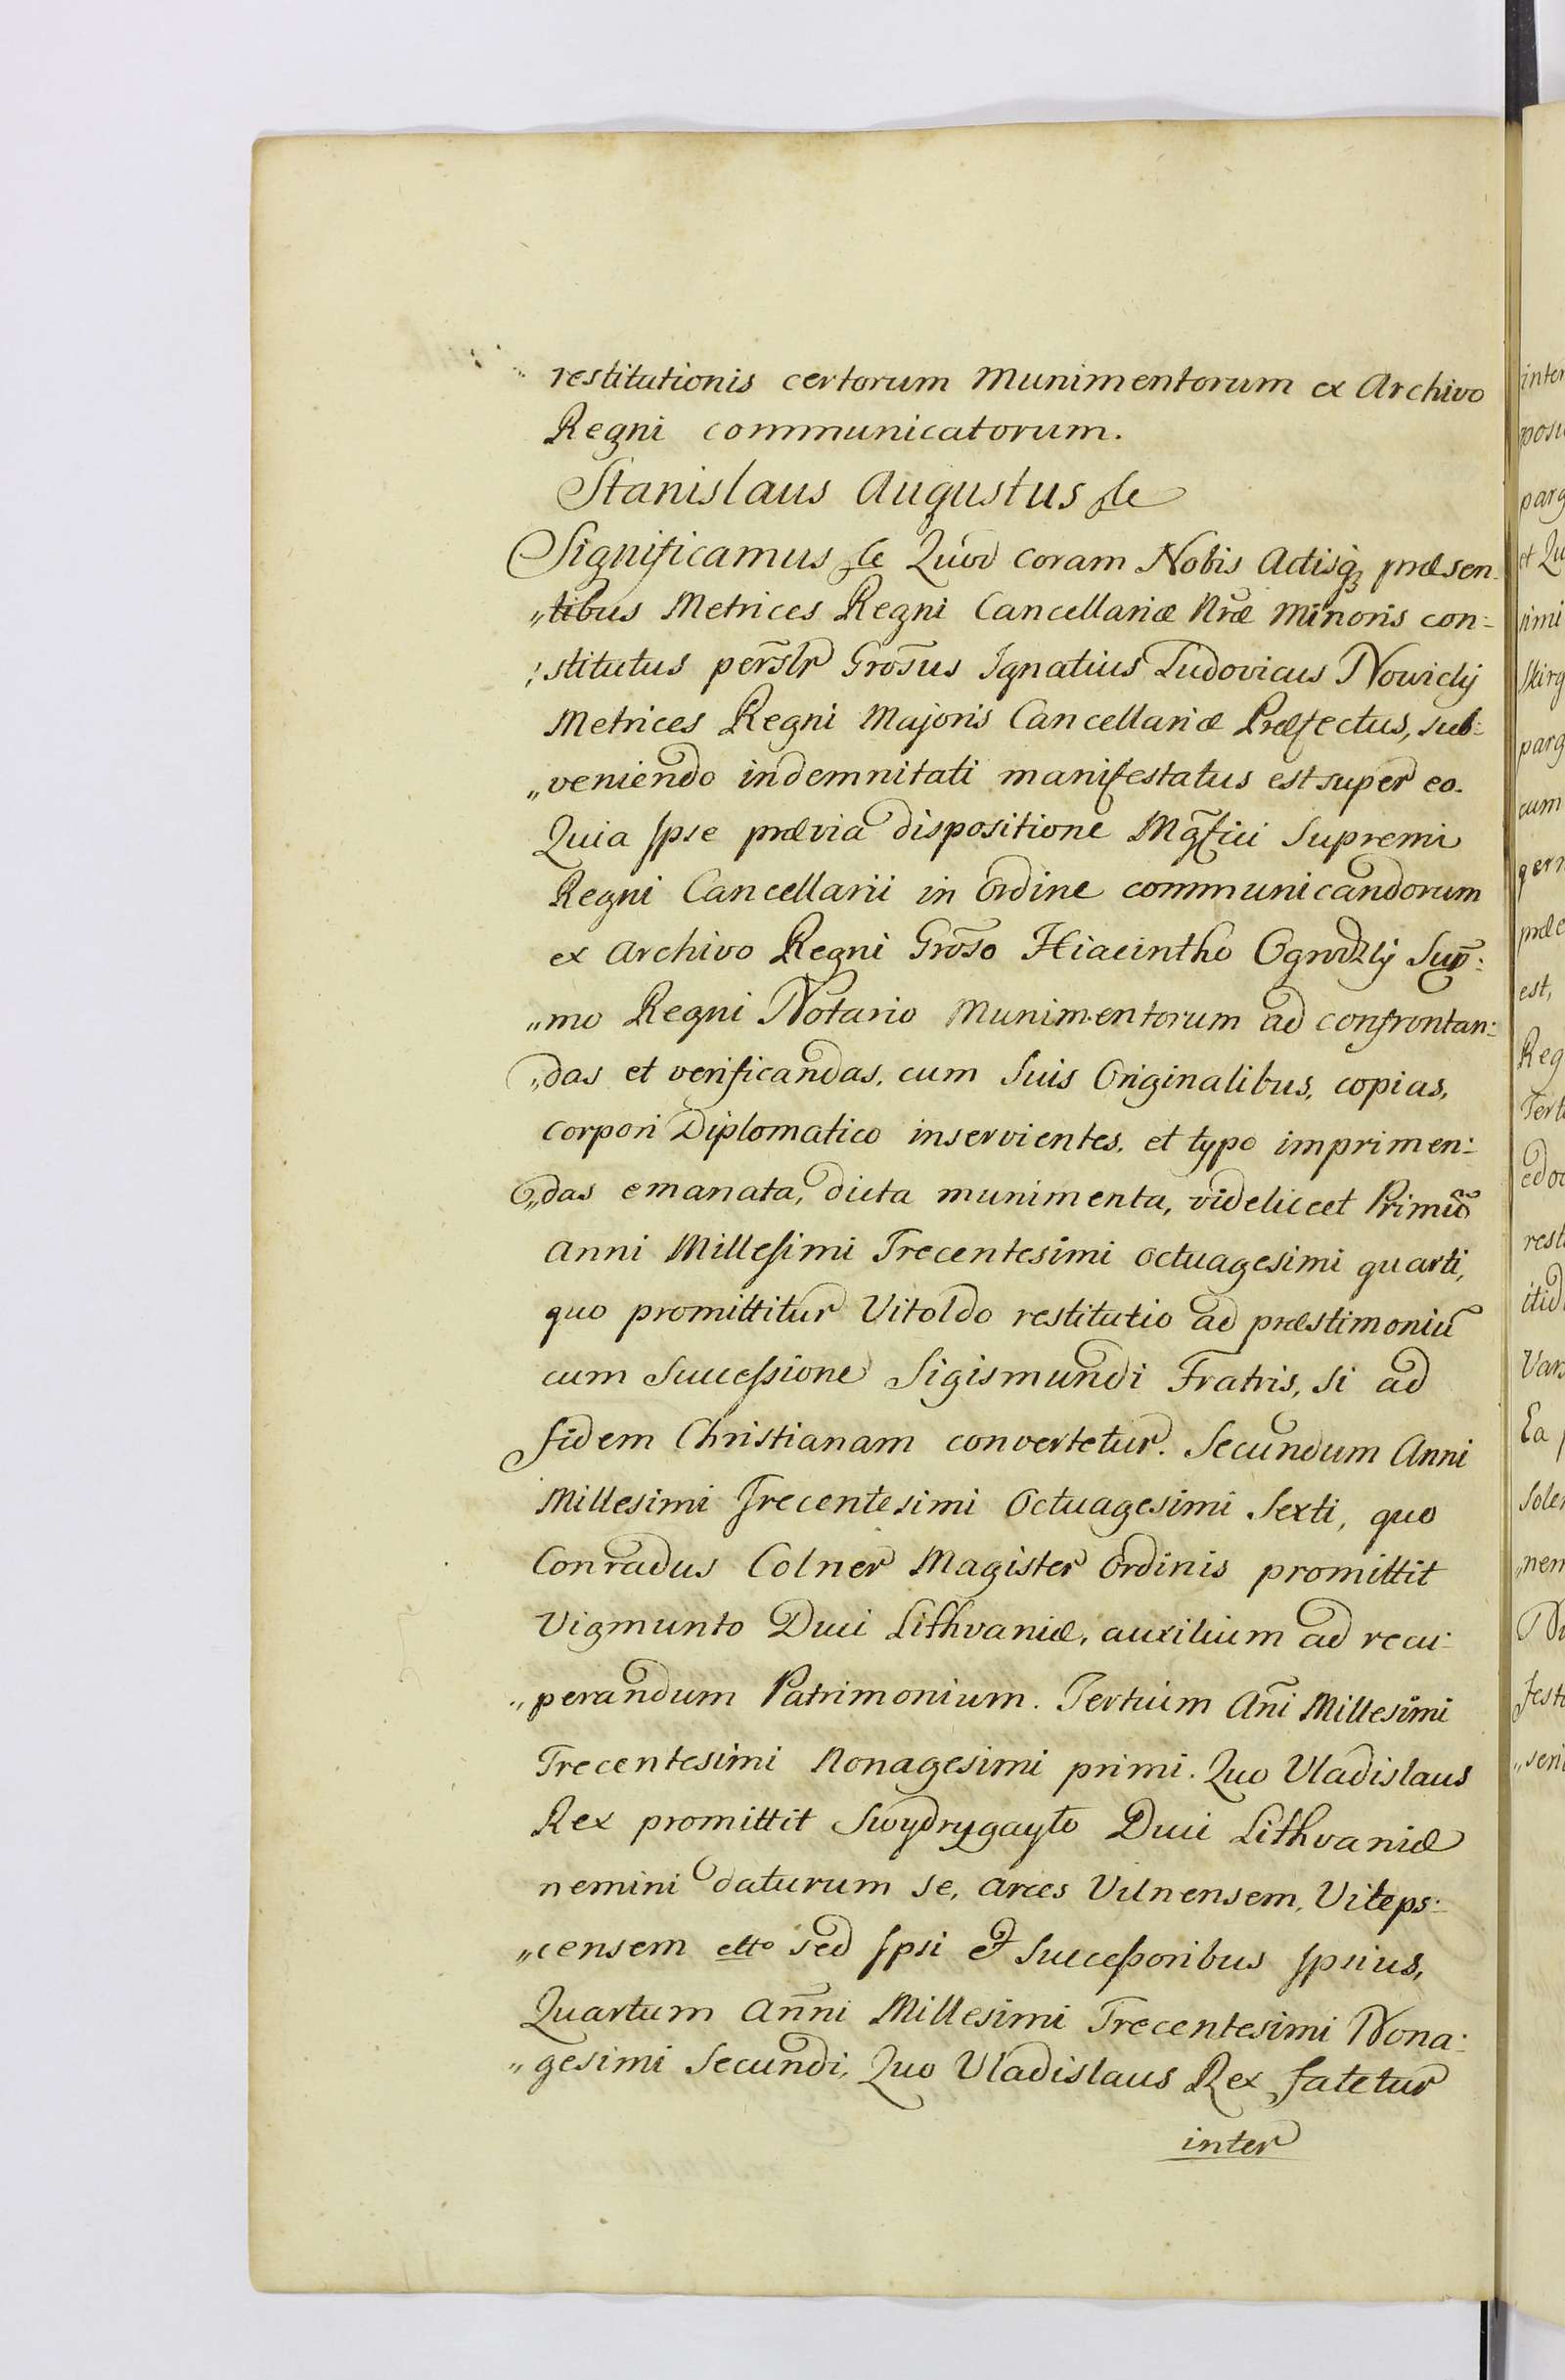 restitutionis certorum Munimentorum ex Archivo
Regni communicatorum.
Stanislaus Augustus &c
Significamus &c Quod coram Nobis Actisq, præsen-
„tibus Metrices Regni Cancellariæ Nræ Minoris con:
„stitutus persℓr Grosus Ignatius Ludovicus Nowickj
Metrices Regni Majoris Cancellariæ Præfectus, sub:
„veniendo indemnitati manifestatus est super eo.
Quia Ipse prævia dispositione Mgfici Supremi
Regni Cancellarii in Ordine communicandorum
ex Archivo Regni Groso Hiacintho Ogrodzkj Sup:
„mo Regni Notario Munimentorum ad confrontan:
„das et verificandas, cum Suis Originalibus, copias,
corpori Diplomatico inservientes, et typo imprimen:
„das emanata, dicta munimenta, videliceet Primũ
Anni Millesimi Trecentesimi octuagesimi quarti,
quo promittitur Vitoldo restitutio ad præstimoniũ
cum Successione Sigismundi Fratris, si ad
fidem Christianam convertetur. Secundum Anni
Millesimi Trecentesimi Octuagesimi Sexti, quo
Conradus Colner Magister Ordinis promittit
Vigmunto Duci Lithvaniæ, auxilium ad recu:
„perandum Patrimonium. Tertium Añi Millesimi
Trecentesimi Nonagesimi primi. Quo Vladislaus
Rex promittit Swydrygayło Duci Lithvaniæ
nemini daturum se, arces Vilnensem, Viteps:
„censem ett° sed Ipsi et Successoribus Ipsius,
Quartum Anñi Millesimi Trecentesimi Nona:
„gesimi Secundi, Quo Vladislaus Rex fatetur
inter